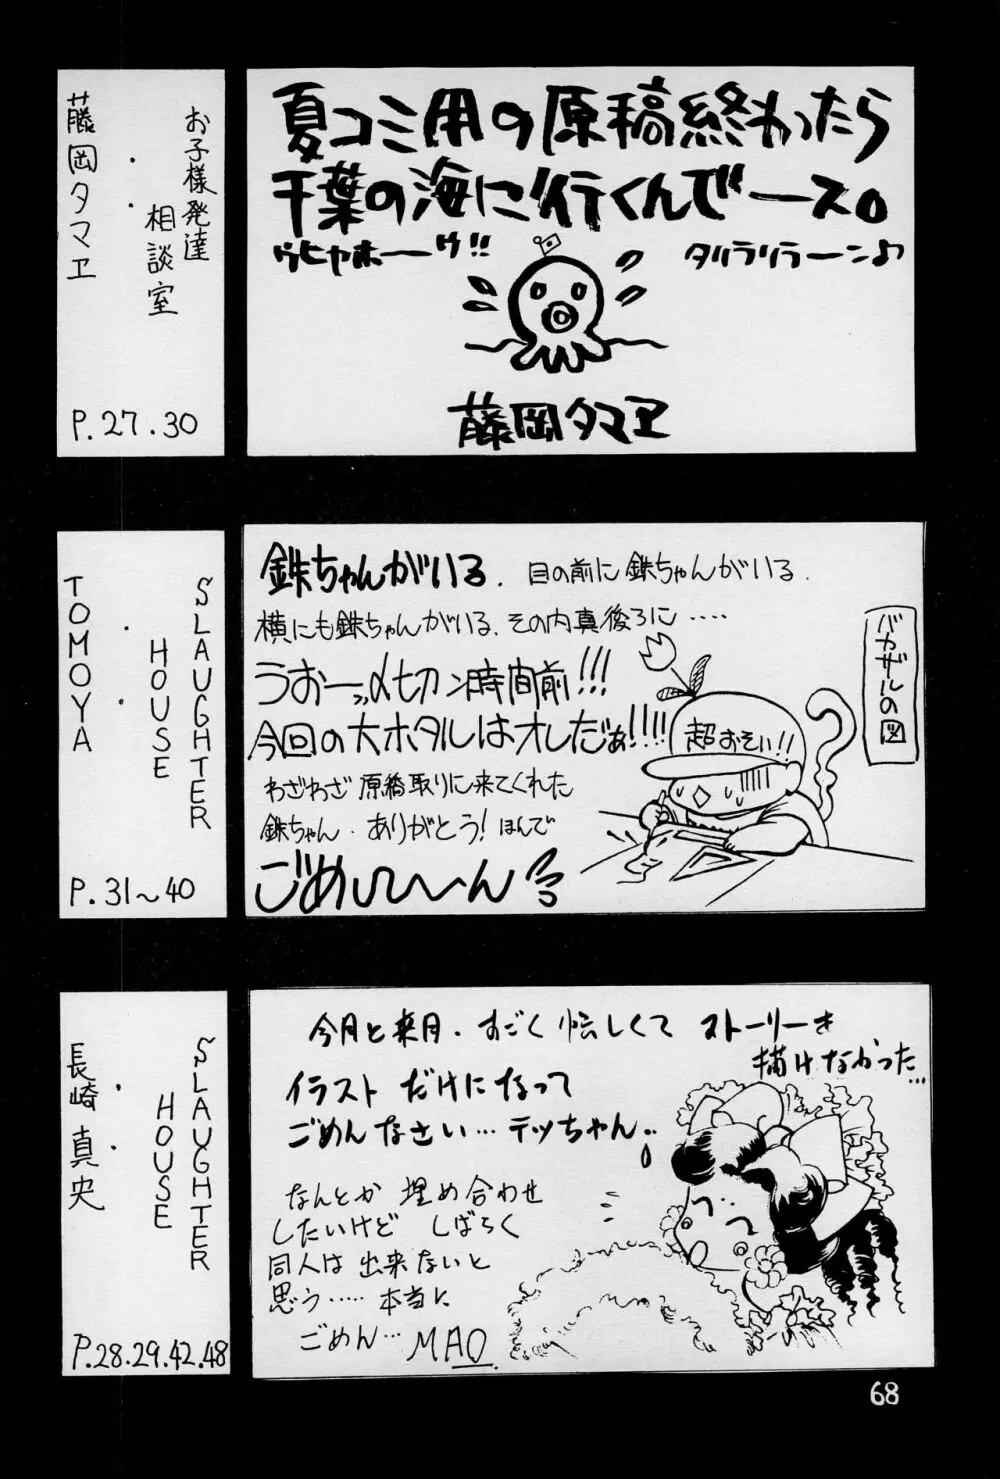 お子様発達
相談室
藤岡タマヱ
P.27.30
夏コミ用の原稿終わったら
千葉の海に行くんでース。
ウヒャホーーゥ!!
タリラリラーン♪
藤岡タマヱ
SLAUGHTER
HOUSE
TOMOYA
P.31〜40
鉄ちゃんがいる. 目の前に鉄ちゃんがいる.
横にも鉄ちゃんがいる、その内真後ろに‥‥
うおーッ〆切ン時間前!!!
今回の大ホタルはオレだぁ!!!!
わざわざ原稿取りに来てくれた
鉄ちゃん.ありがとう!ほんで
ごめし〜〜ん
超おそい!!
バカザルの図
SLAUGHTER
HOUSE
長崎真央
P.28.29.42.48
今月と来月.すごく忙しくて ストーリーき
描けなかった…
イラスト だけになって
ごめんなさい…テッちゃん..
なんとか 埋め合わせ
したいけど しばらく
同人は 出来ないと
思う…‥ 本当に
ごめん… MAO
68